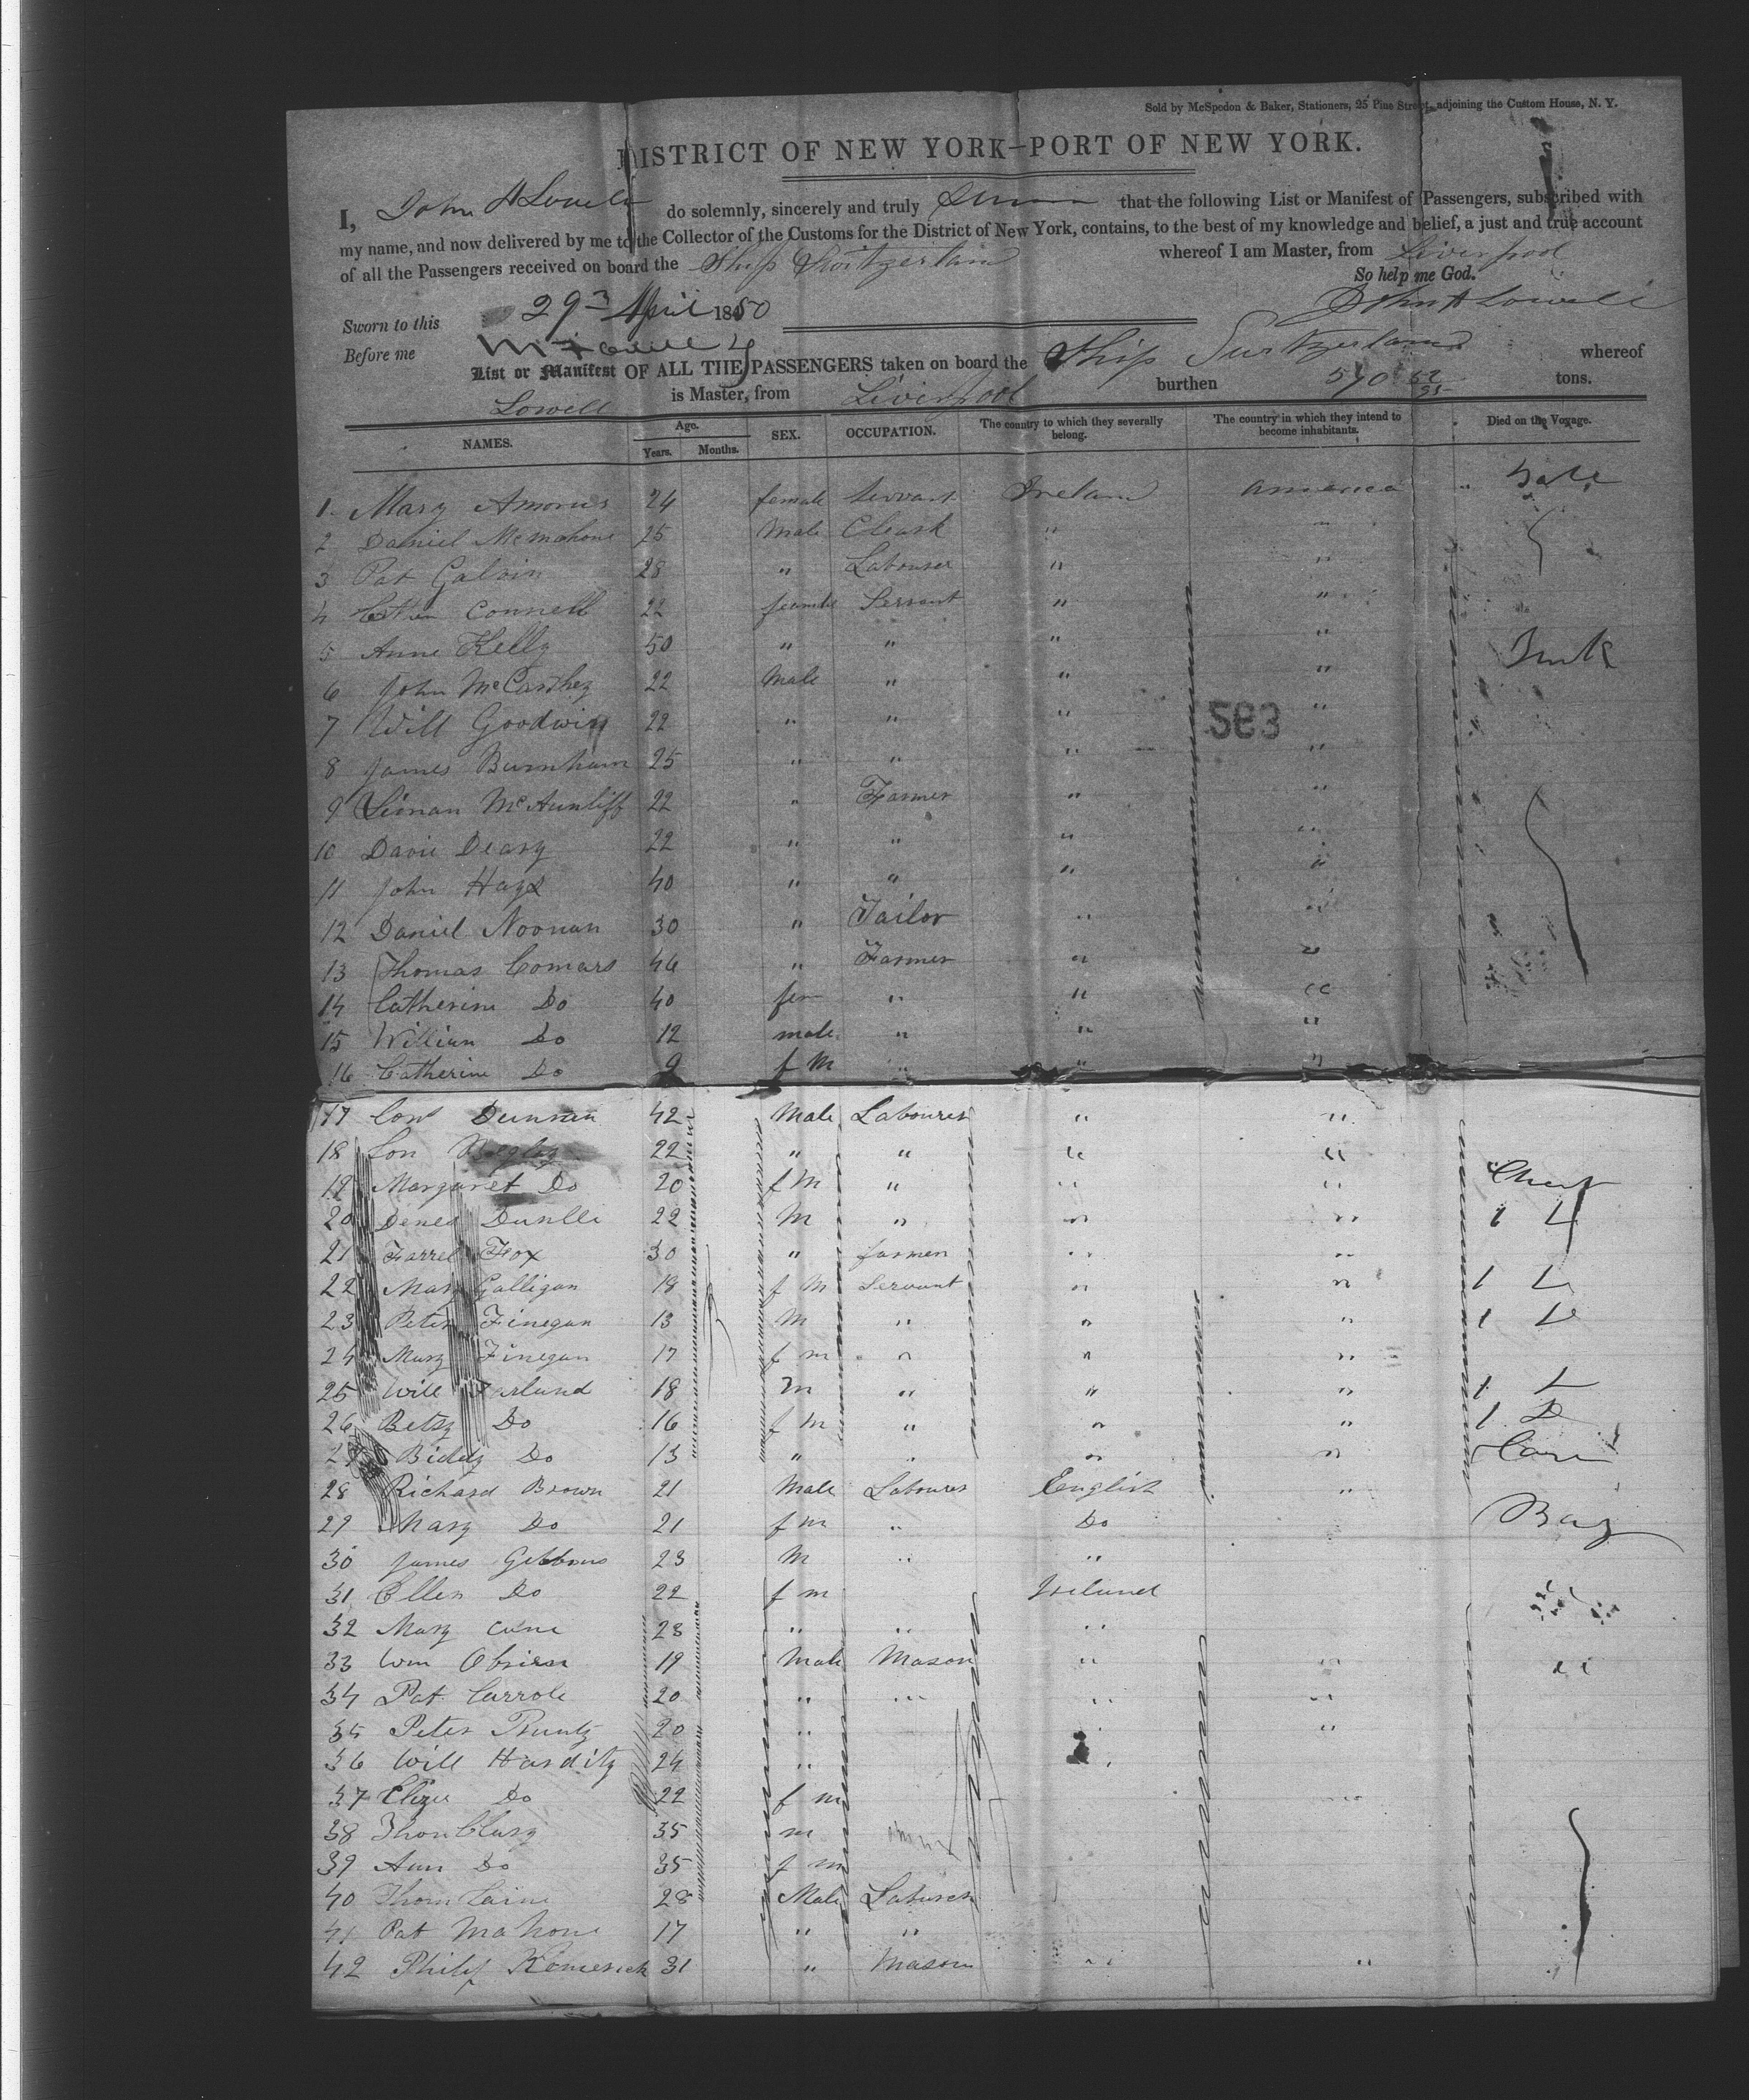 Sold by McSpedon & Baker, Stationers, 25 Pine Street, adjoining the Custom House, N. Y.
DISTRICT OF NEW YORK—PORT OF NEW YORK.
I, John A Lowell do solemnly, sincerely and truly that the following List or Manifest of Passengers, subscribed with
my name, and now delivered by me to the Collector of the Customs for the District of New York, contains, to the best of my knowledge and belief, a just and true account
of all the Passengers received on board the Ship Switzerland whereof I am Master, from Liverpool
So help me God.
Sworn to this 29 April 1850 John A Lowell
Before me
List or Manifest OF ALL THE PASSENGERS taken on board the Ship Switzerland whereof
Lowell is Master, from Liverpool burthen tons.
NAMES. Age. Years. Months. SEX. OCCUPATION. The country to which they severally belong. The country in which they intend to become inhabitants. Died on the Voyage.
1 Mary 24 female Servant Ireland America
2 Daniel McMahone 25 Male Cleark " "
3 Pat Galvin 28 " Labourer " "
4 Connell 22 female Servant " "
5 Anne Kelly 50 " " " "
6 John McCarthey 22 Male " " "
7 Will Goodwin 22 " " " "
583
8 James Burnham 25 " " " "
9 McAunliff 22 " Farmer " "
10 Davie Deary 22 " " " "
11 John Hays 40 " " " "
12 Daniel Noonan 30 " Tailor " "
13 Thomas Comars 46 " Farmer " "
14 Catherine Do 40 fem " " "
15 William Do 12 male " " "
16 Catherine Do 9 f M " " "
17 Con 42 Male Labourer " "
18 22 " " " "
19 Margaret Do 20 f M " " " Chest
20 22 M " " " 1 L
21 Farrel Fox 30 " farmer " "
22 Mary Galligan 18 f M Servant " " 1 L
23 Peter Finegan 13 M " " " 1
24 Mary Finegan 17 f m " " "
25 Will Farlund 18 M " " " 1 L
26 Betsy Do 16 f M " " " 1
27 Biddy Do 13 " " " "
28 Richard Brown 21 Male Labourer English "
29 Mary Do 21 f m " Do Bag
30 James Gibbons 23 M " "
31 Ellen Do 22 f m Ireland
32 Mary 28 " " "
33 Wm Obrien 19 Male Mason " " "
34 Pat Carrole 20 " " " "
35 Peter 20 " " "
36 Will 24 " "
37 Do 22 f m "
38 35 m
39 Ann Do 35 f m
40 Thom 28 Male Labourer
41 Pat Mahone 17 " "
42 Philip 31 " Mason " "